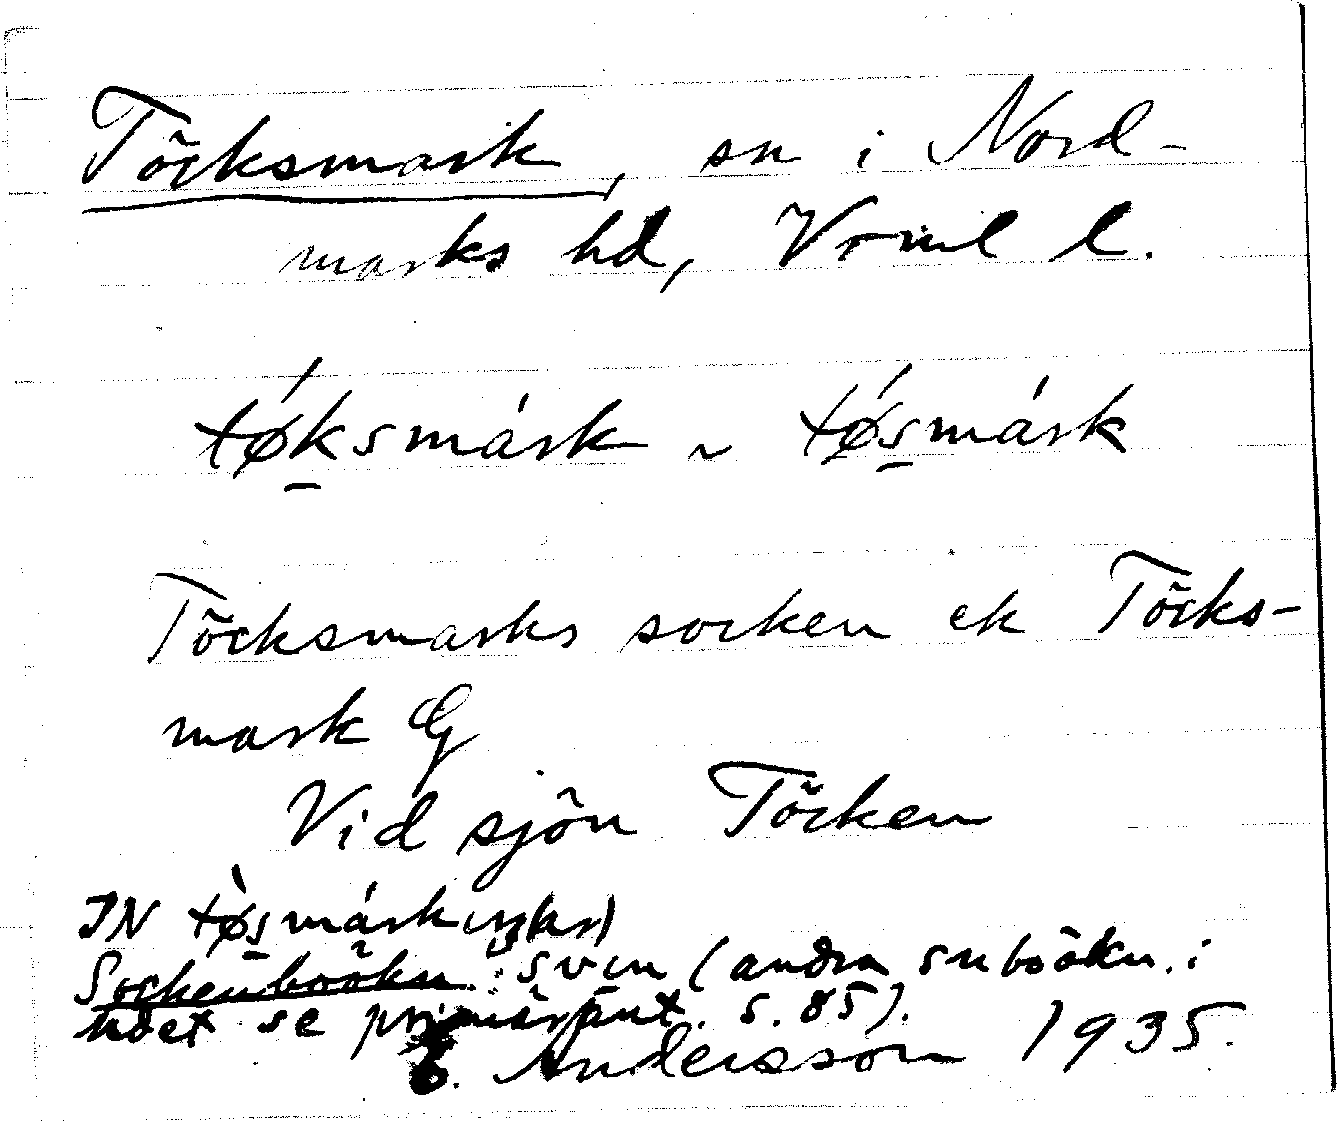 Töcksmark, sn i Nord-
marks hd, Vrml l.
tǿksmárk ~ tǿsmárk
Töcksmarks socken ek Töcks-
mark G
Vid sjön Töcken
IN tø̀smárk
Sockenboökn: (andra snboökn. i
hdet se primäruppt. s. 85).
E. Andersson 1935.